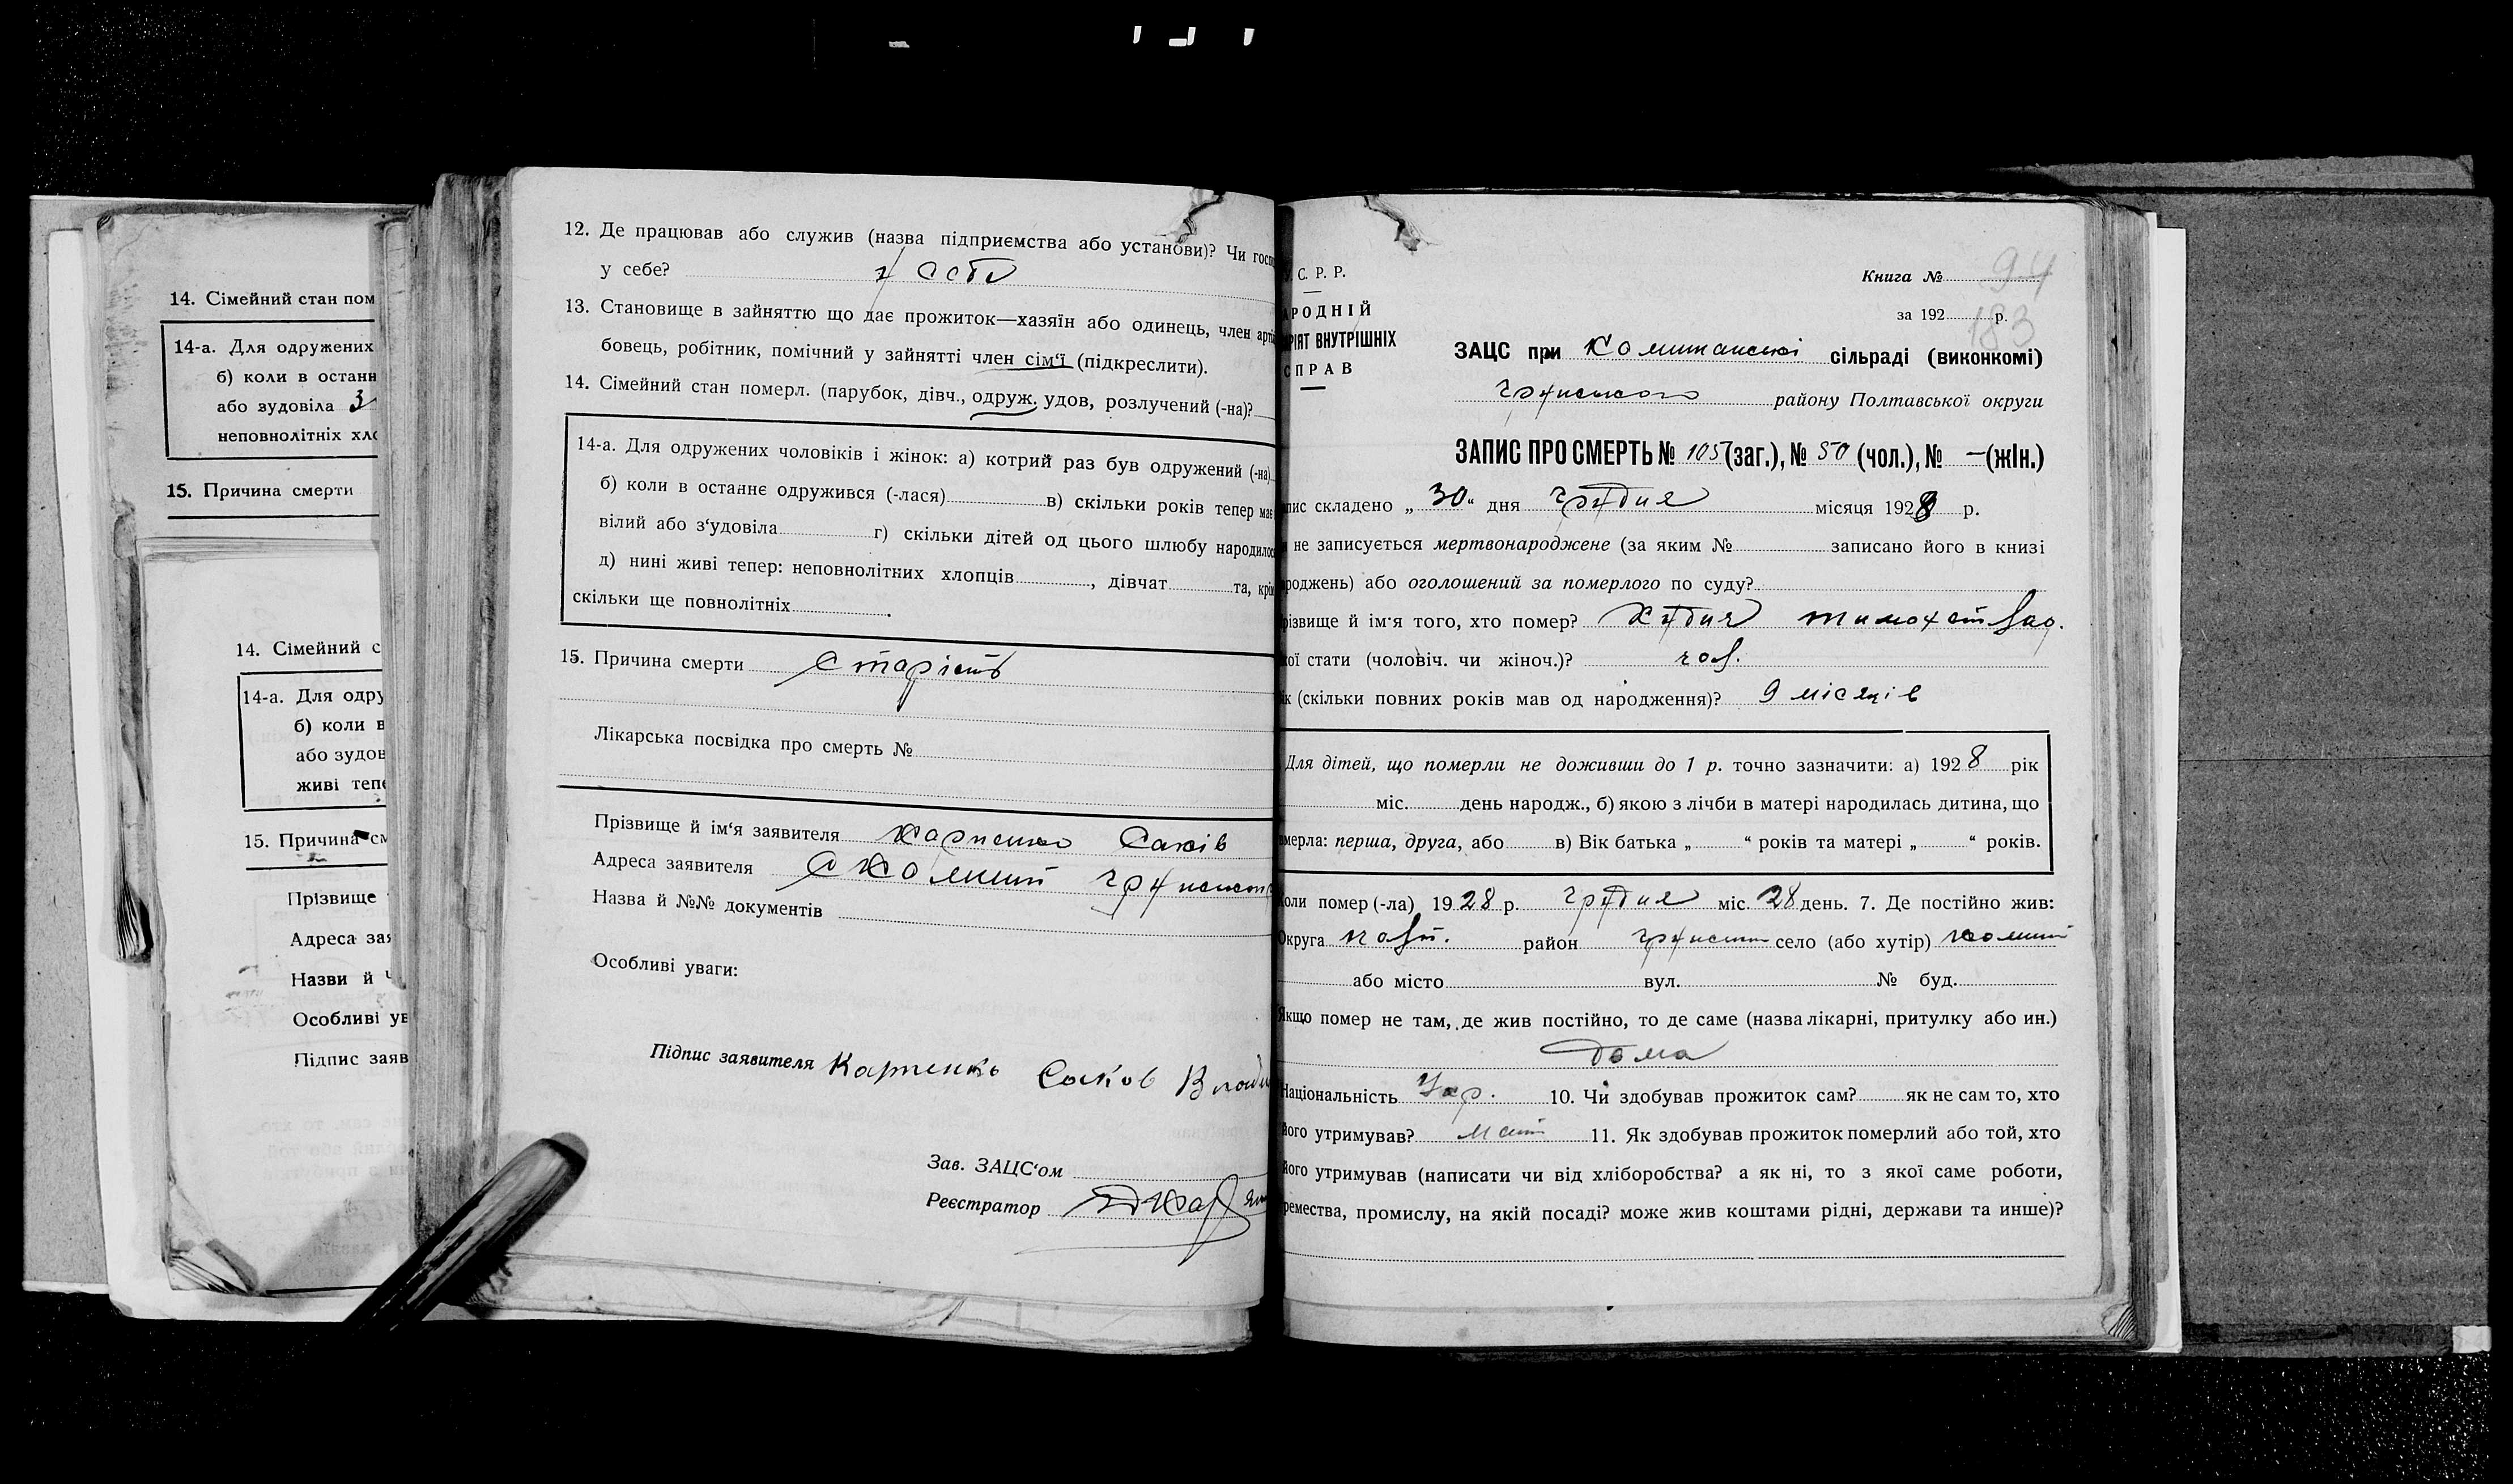 14. Сімейний стан пом
14-а. Для одружених
б) коли в останн
або зудовіла З
неповнолітніх хло
15. Причина смерти
14. Сімейний с
14-а. Для одру
б) коли в
або зудов
живі тепе
15. Причина см
Прізвище
Адреса зая
Назви й
Особливі ув
Підпис заяв
12. Де працював або служив (назва підприємства або установи)? Чи госп
у себе? у себе
13. Становище в зайняттю що дає прожиток—хазяїн або одинець, член арті
бовець, робітник, помічний у зайнятті член сім‘ї (підкреслити).
14. Сімейний стан померл. (парубок, дівч., одруж. удов, розлучений (-на)?
14-а. Для одружених чоловіків і жінок: а) котрий раз був одружений (-на)
б) коли в останнє одружився (-лася) в) скільки років тепер має
вілий або з‘удовіла г) скільки дітей од цього шлюбу народилос
д) нині живі тепер: неповнолітних хлопців , дівчат та, крім
скільки ще повнолітніх .
15. Причина смерти Старість
Лікарська посвідка про смерть №
Прізвище й ім‘я заявителя Карпенко Саків
Адреса заявителя
Назва й №№ документів
Особливі уваги:
Підпис заявителя Карпенко Саков
Зав. ЗАЦС‘ом
Реєстратор
У. С. Р. Р.
АРОДНІЙ
РІЯТ ВНУТРІШНІХ
СПРАВ
Книга № 94
за 192 р.
183
ЗАЦС при сільраді (виконкомі)
району Полтавської округи
ЗАПИС ПРО СМЕРТЬ № 105 (заг.), № 50 (чол.), № — (жін.)
пис складено „ 30 “ дня грудня місяця 1928 р.
не записується мертвонароджене (за яким № записано його в книзі
роджень) або оголошений за померлого по суду?
різвище й ім‘я того, хто помер?
кої стати (чоловіч. чи жіноч.)? чол.
ік (скільки повних років мав од народження)? 9 місяців
Для дітей, що померли не доживши до 1 р. точно зазначити: а) 1928 рік
міс. день народж., б) якою з лічби в матері народилась дитина, що
мерла: перша, друга, або в) Вік батька „ “ років та матері „ “ років.
Коли помер (-ла) 1928 р. грудня міс. 28 день. 7. Де постійно жив:
Округа полт. район село (або хутір)
або місто вул. № буд.
Якщо помер не там, де жив постійно, то де саме (назва лікарні, притулку або ин.)
дома
Національність Укр. 10. Чи здобував прожиток сам? як не сам то, хто
його утримував? мати 11. Як здобував прожиток померлий або той, хто
його утримував (написати чи від хліборобства? а як ні, то з якої саме роботи,
ремества, промислу, на якій посаді? може жив коштами рідні, держави та инше)?